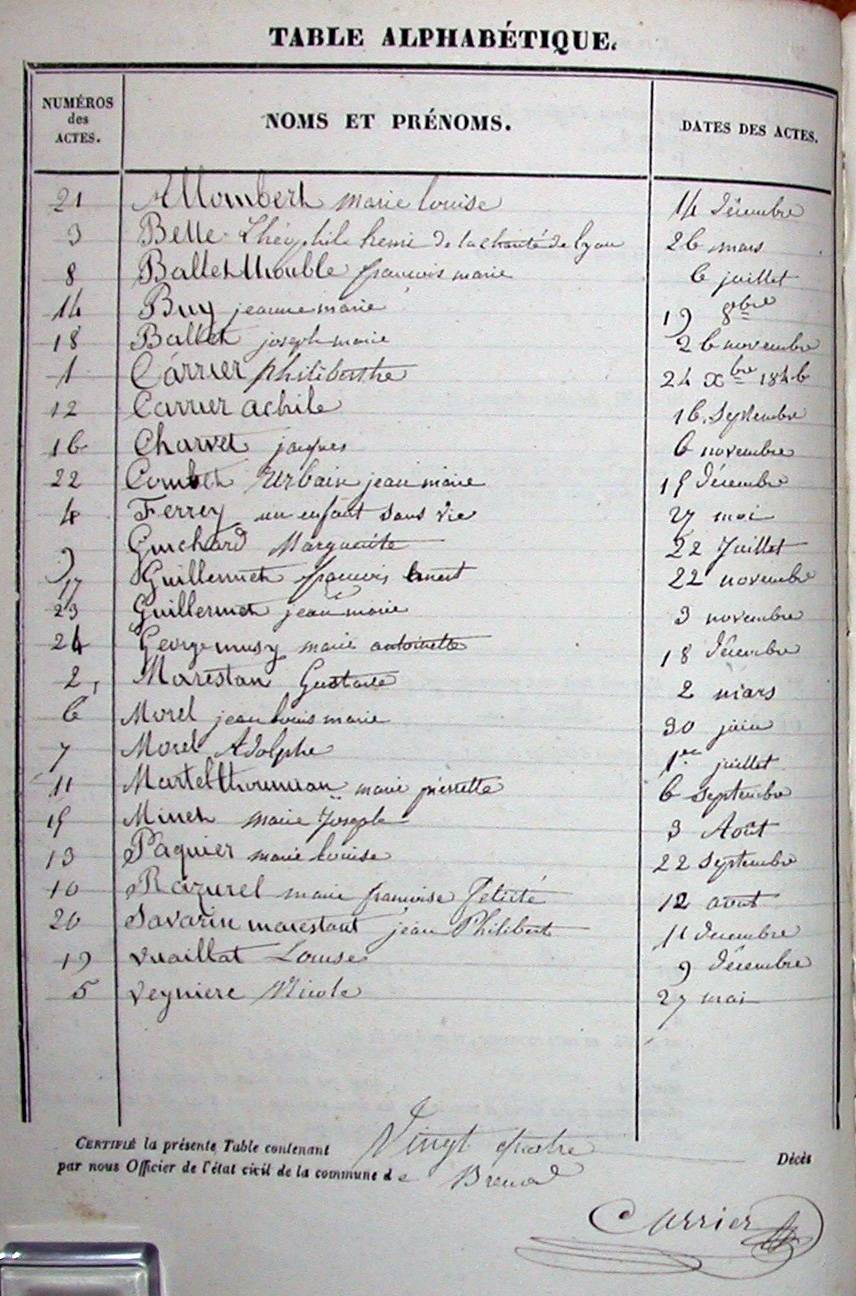 TABLE ALPHABÉTIQUE.
NUMÉROS des ACTES. NOMS ET PRÉNOMS. DATES DES ACTES.
21 Allombert marie louise 14 décembre
3 Belle Théophile henri de la charité de lyon 26 mars
8 Ballet Mouble francois marie 6 juillet
14 Buy jeanne marie 19 8bre
18 Ballet joseph marie 26 novembre
1 Carrier Philiberthe 24 Xbre 1846
12 Carrier achile 16 Septembre
16 Charvet jacques 6 novembre
22 Combet Urbain jean marie 15 décembre
4 Ferrey un enfant sans vie 27 mai
9 Guichard Marguerite 22 Juillet
17 Guillermet francois 22 novembre
23 Guillermet jean marie 3 novembre
24 George musy marie antoinette 18 décembre
2 Marestan Gustave 2 mars
6 Morel jean louis marie 30 juin
7 Morel Adolphe 1er juillet
11 Martel thounnan marie pierrette 6 Septembre
15 Minet marie Joseph 3 Août
13 Paquier marie louise 22 Septembre
10 Razurel marie francoise Félicité 12 aout
20 Savarin marestant jean Philibert 11 decembre
19 Vuaillat Louise 9 décembre
5 Veyniere Nicole 27 mai
CERTIFIÉ la présente Table contenant Vingt quatre Décès
par nous Officier de l'état civil de la commune de Brenod
Carrier